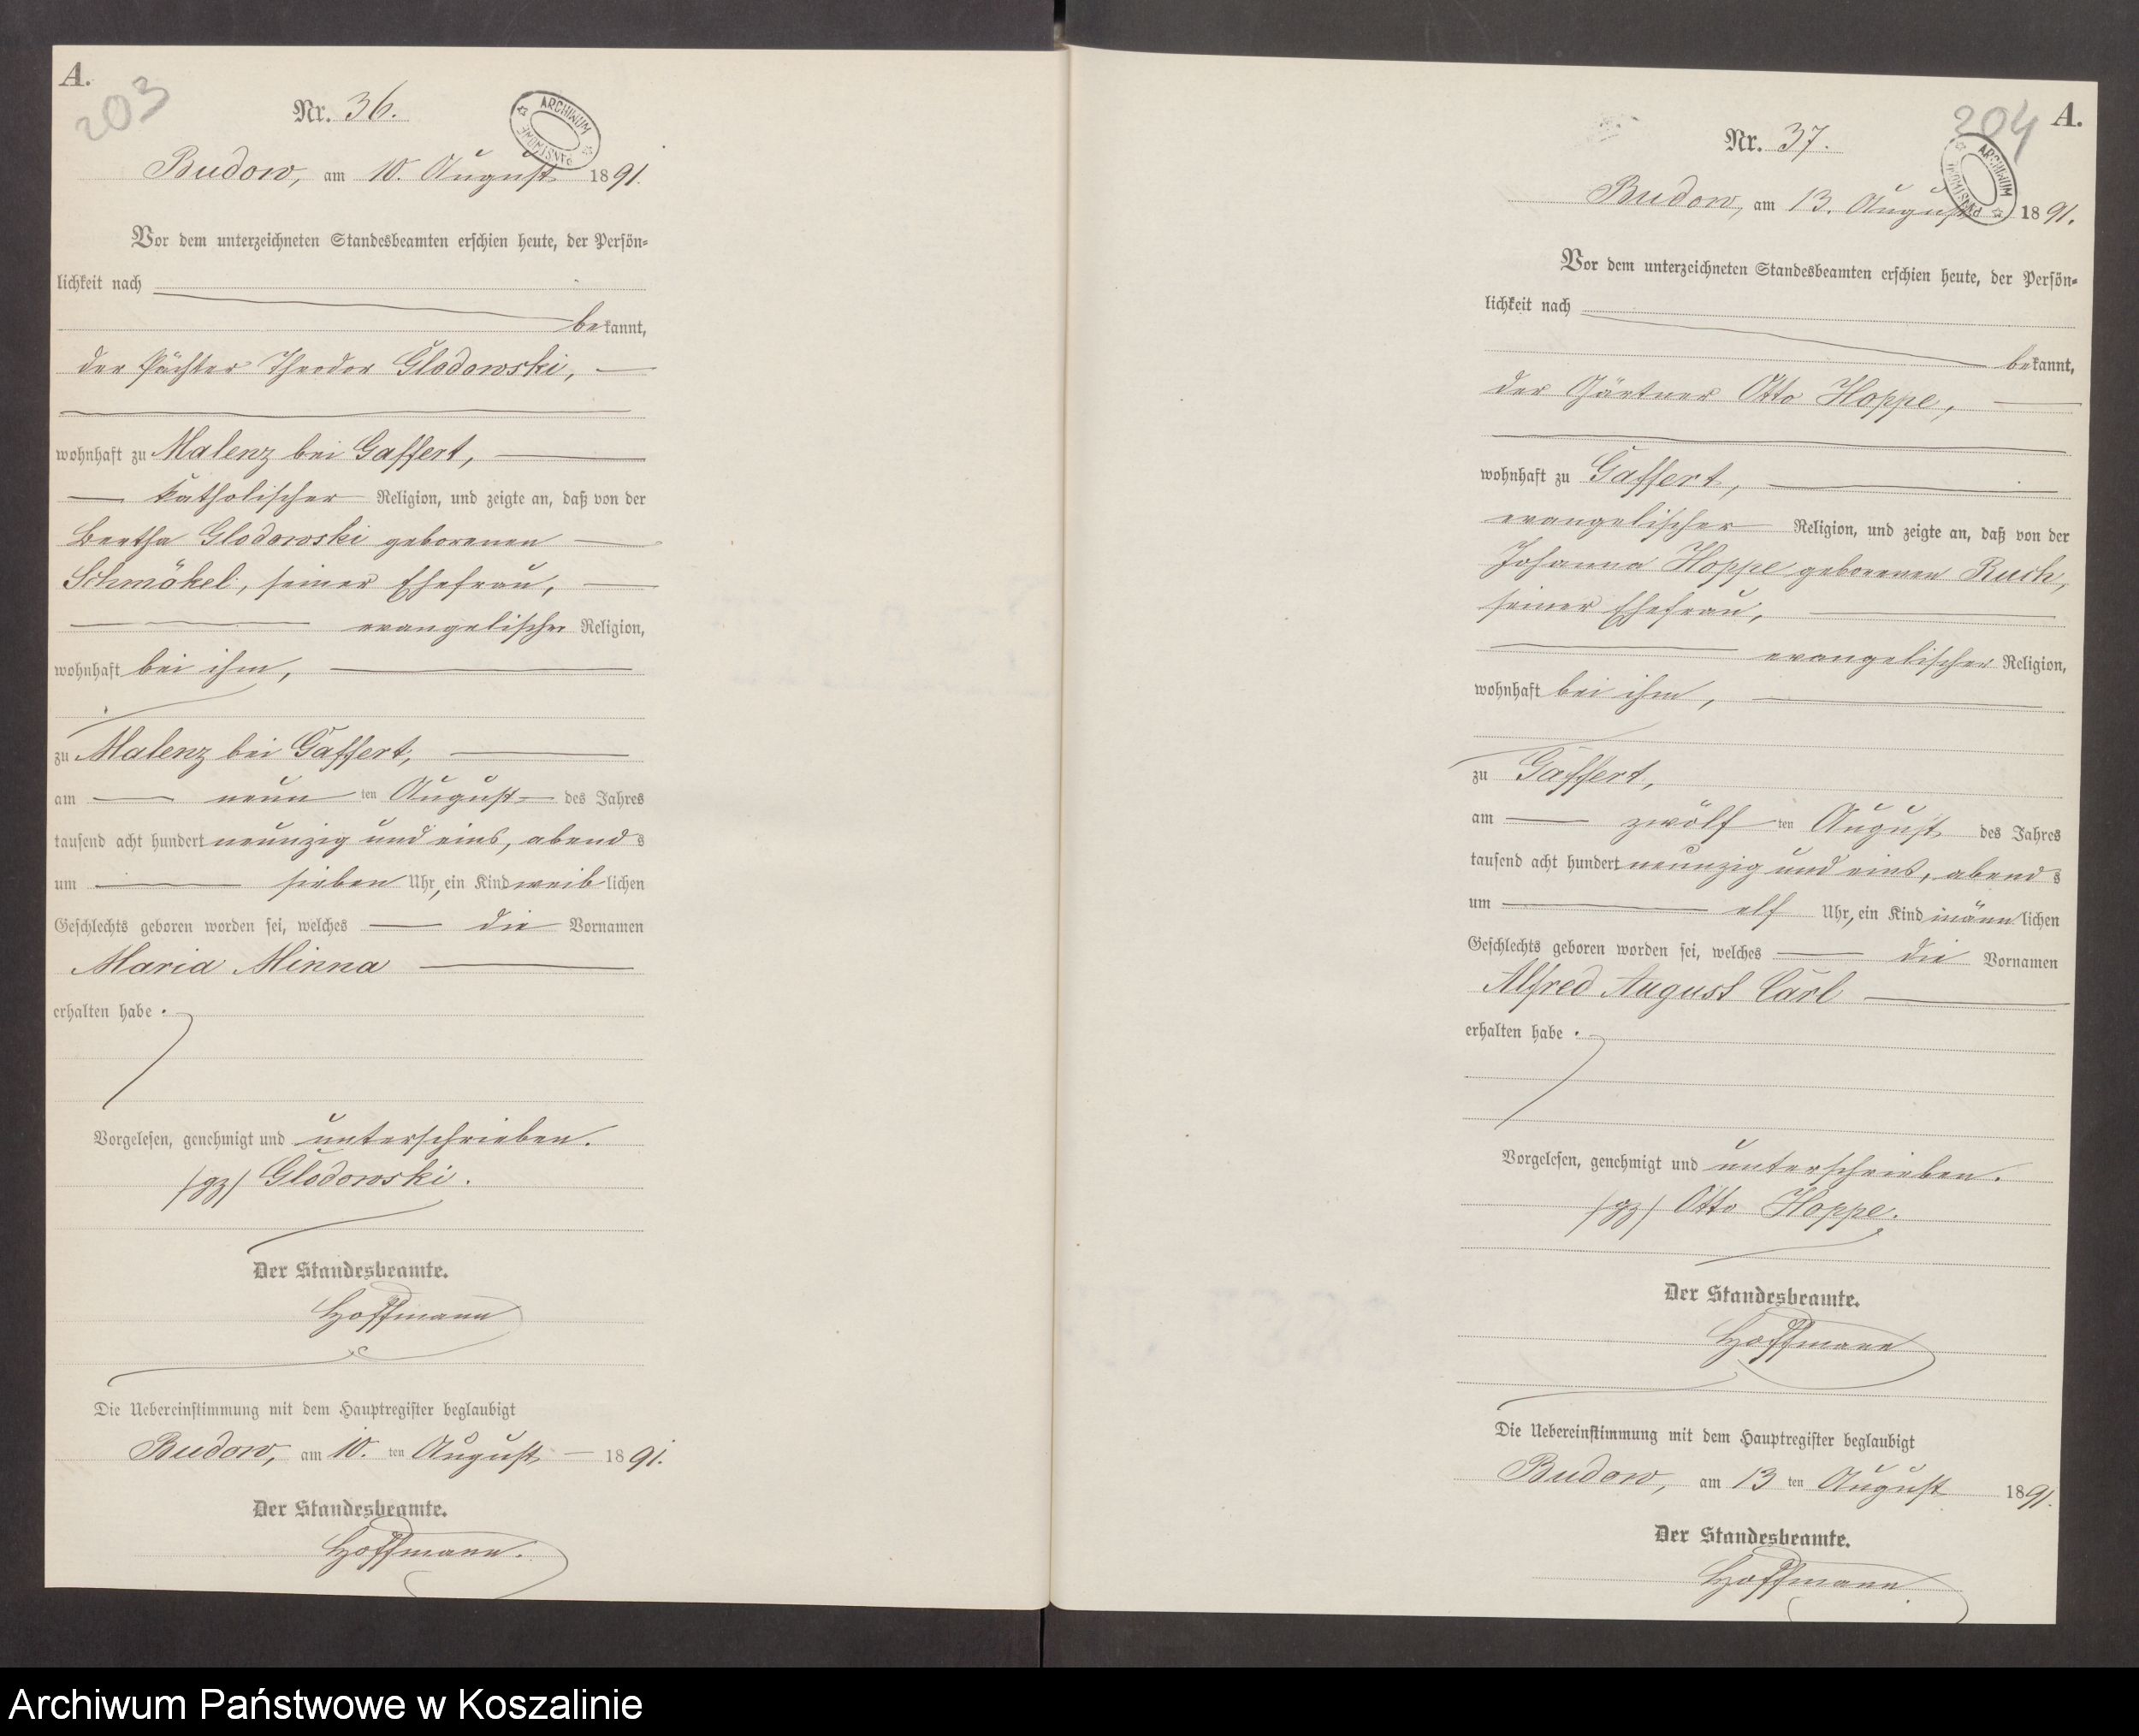 A.
203
Nr. 36.
ARCHIWUM PAŃSTWOWE
Budow, am 10. August 1891.
Vor dem unterzeichneten Standesbeamten erschien heute, der Persön-
lichkeit nach
bekannt,
der Pächter Theodor Glodowski,
wohnhaft zu Malenz bei Gaffert,
katholischer Religion, und zeigte an, daß von der
Bertha Glodowski geborenen
Schmökel, seiner Ehefrau,
evangelischer Religion,
wohnhaft bei ihm,
zu Malenz bei Gaffert,
am neun ten August des Jahres
tausend acht hundert neunzig und eins, abends
um sieben Uhr, ein Kind weiblichen
Geschlechts geboren worden sei, welches die Vornamen
Maria Minna
erhalten habe.
Vorgelesen, genehmigt und unterschrieben.
/gz/ Glodowski.
Der Standesbeamte.
Hoffmann
Die Uebereinstimmung mit dem Hauptregister beglaubigt
Budow, am 10. ten August 1891.
Der Standesbeamte.
Hoffmann.
204
A.
Nr. 37.
ARCHIWUM PAŃSTWOWE
Budow, am 13. August 1891.
Vor dem unterzeichneten Standesbeamten erschien heute, der Persön-
lichkeit nach
bekannt,
der Gärtner Otto Hoppe,
wohnhaft zu Gaffert,
evangelischer Religion, und zeigte an, daß von der
Johanna Hoppe geborenen Ruch,
seiner Ehefrau,
evangelischer Religion,
wohnhaft bei ihm,
zu Gaffert,
am zwölf ten August des Jahres
tausend acht hundert neunzig und eins, abends
um elf Uhr, ein Kind männlichen
Geschlechts geboren worden sei, welches die Vornamen
Alfred August Carl
erhalten habe.
Vorgelesen, genehmigt und unterschrieben.
/gz/ Otto Hoppe.
Der Standesbeamte.
Hoffmann
Die Uebereinstimmung mit dem Hauptregister beglaubigt
Budow, am 13 ten August 1891.
Der Standesbeamte.
Hoffmann.
Archiwum Państwowe w Koszalinie